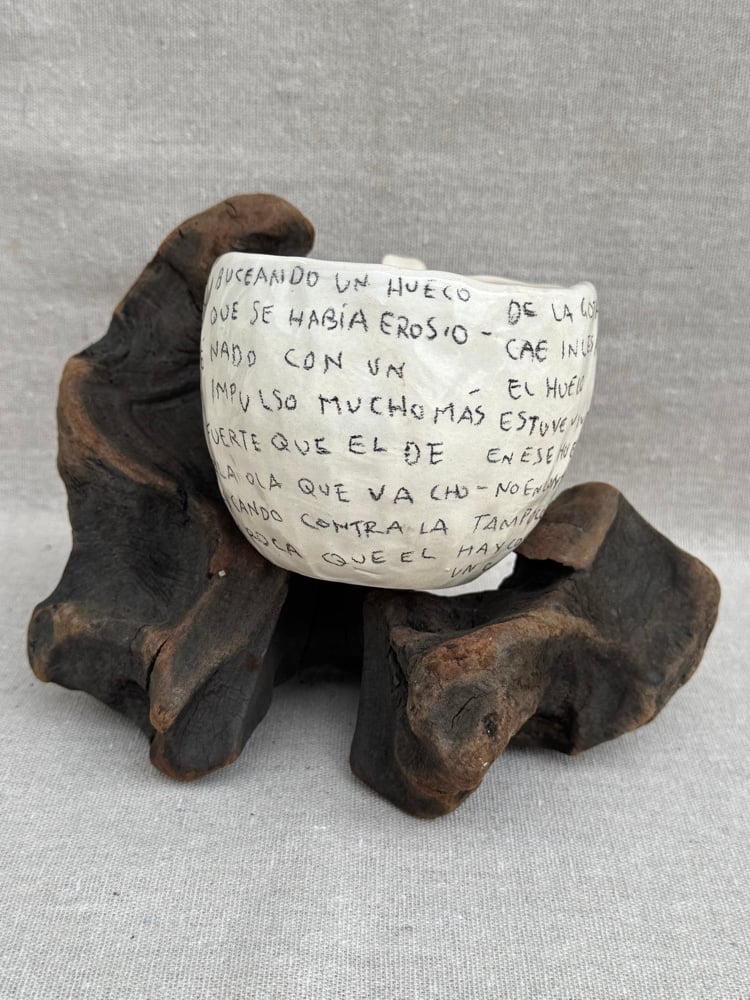 BUCEANDO UN HUECO
QUE SE HABÍA EROSIO-
NADO CON UN
IMPULSO MUCHO MÁS
FUERTE QUE EL DE
LA OLA QUE VA CHO-
CANDO CONTRA LA
ROCA QUE EL
DE LA
CAE
EL HUECO
ESTUVE
EN ESE
NO
TAMPOCO
HAY
UN